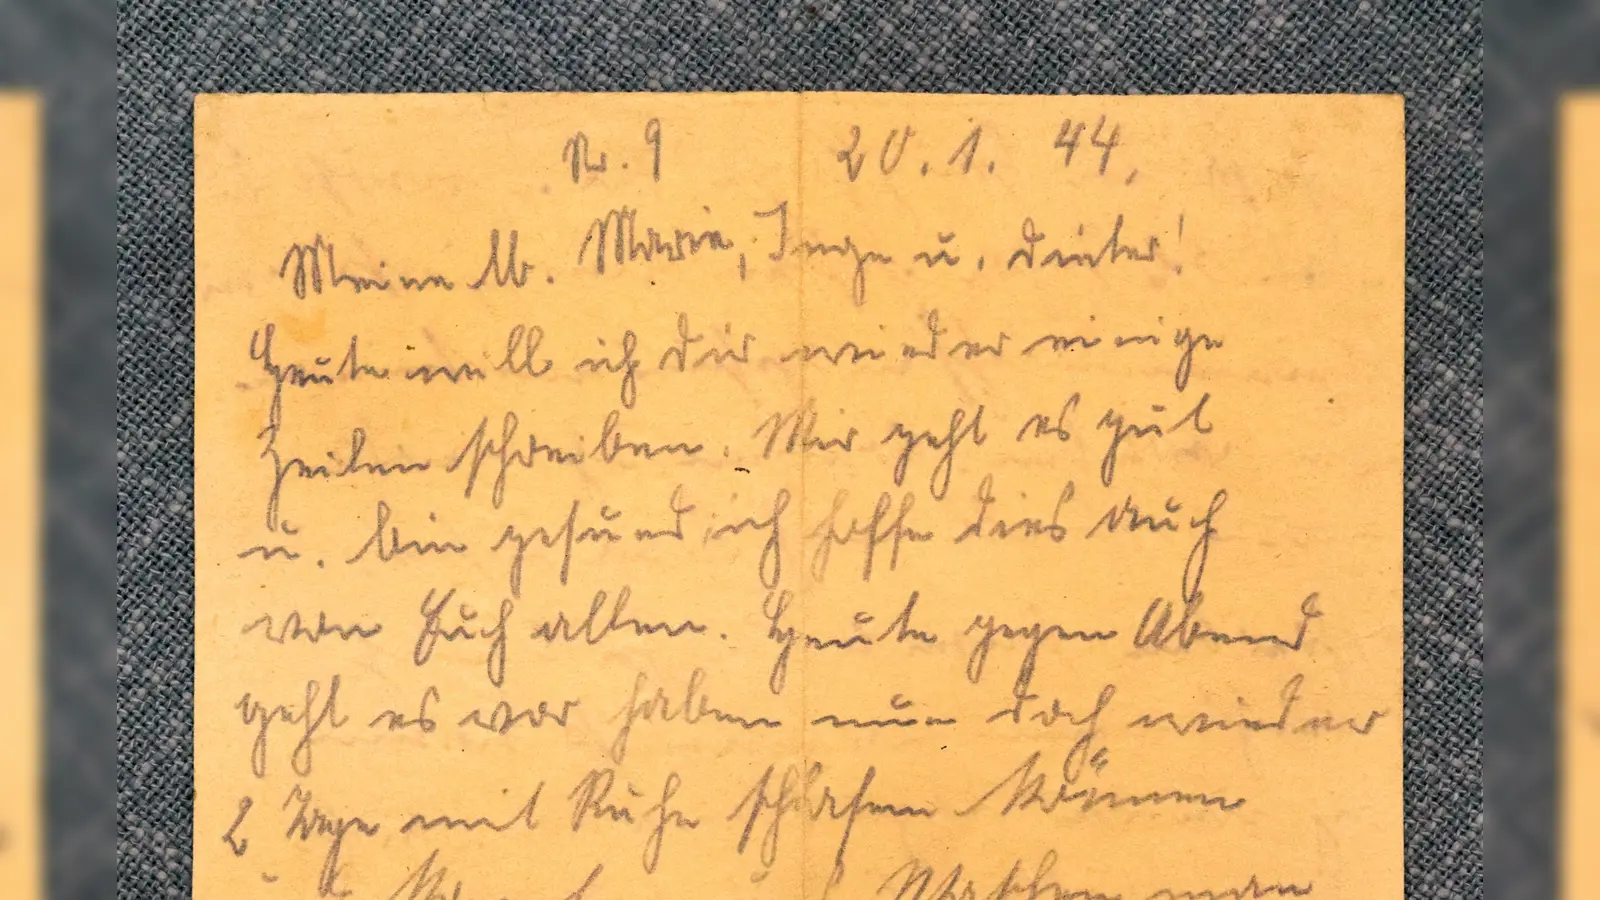 Nr. 9 20. 1. 44.
Meine lb. Marie, Inge u. Dieter!
Heute will ich dir wieder einige
Zeilen schreiben. Mir geht es gut
u. bin gesund ich hoffe dies auch
von Euch allen. Heute gegen Abend
geht es vor haben nun doch wieder
2 Tage mit Ruhe schlafen können
man